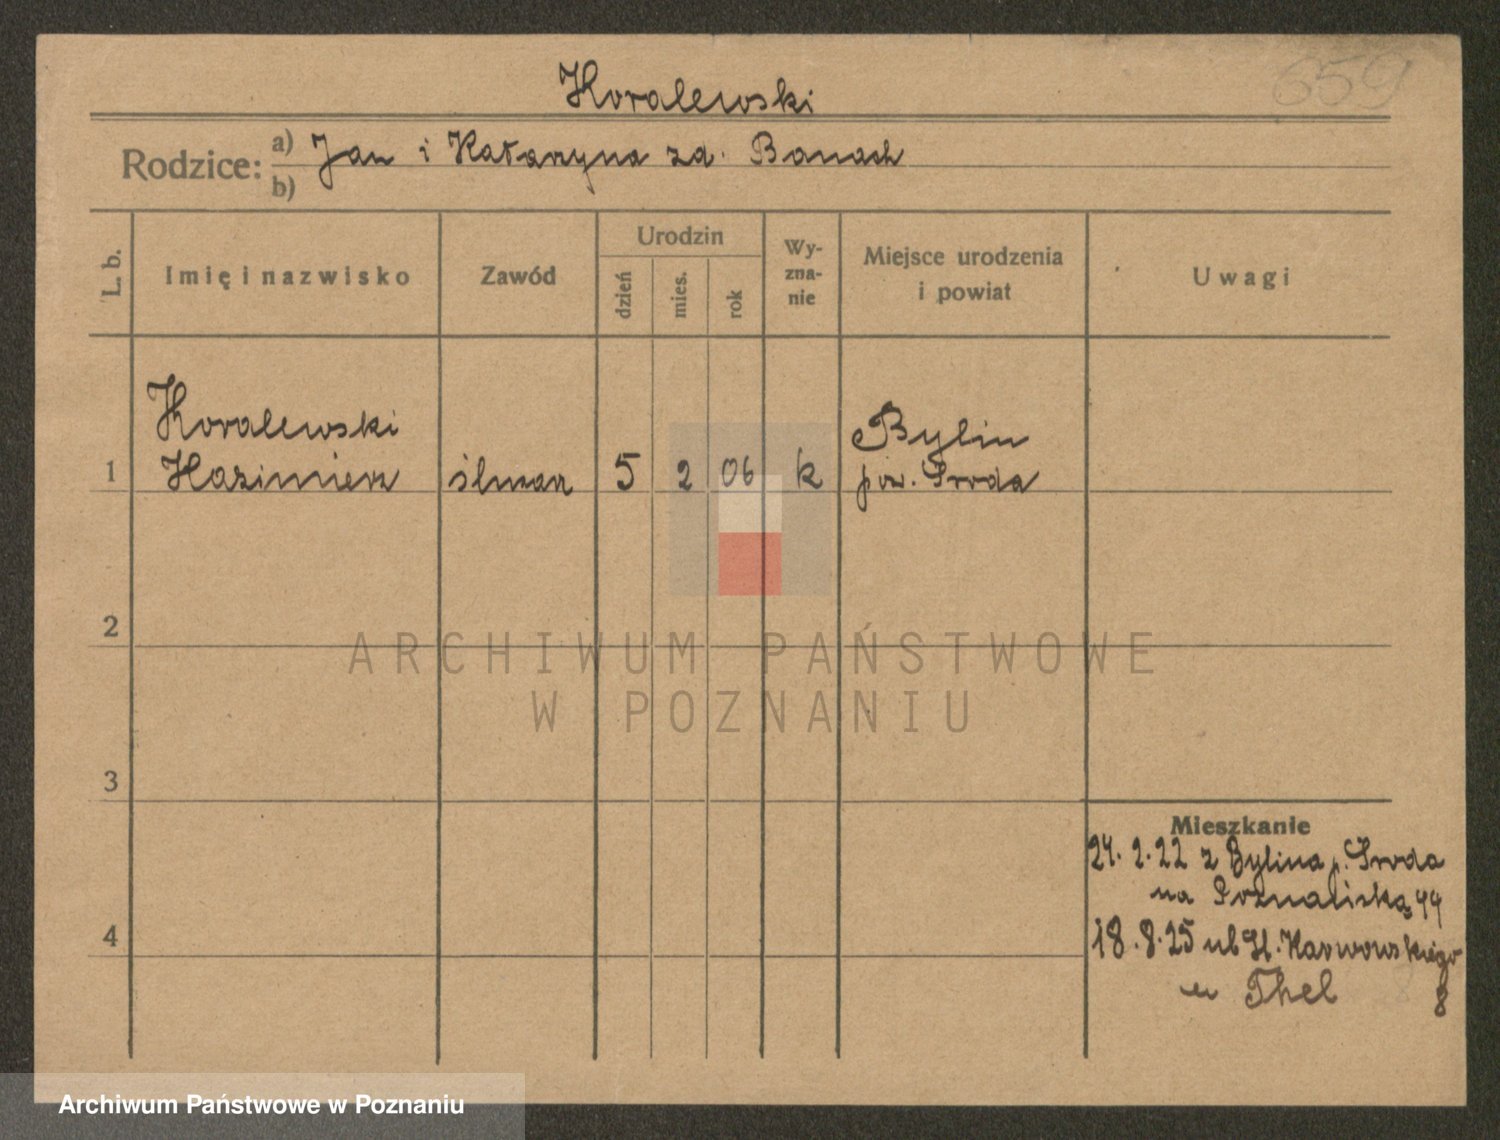 Koralewski
659
Rodzice:
a) Jan i Katarzyna zd. Banach
b)
L. b.
Imię i nazwisko
Zawód
Urodzin
dzień
mies.
rok
Wy-
zna-
nie
Miejsce urodzenia
i powiat
Uwagi
Koralewski
1 Kazimierz ślusarz 5 2 06 k Bylin
pow. Środa
2
ARCHIWUM PAŃSTWOWE
W POZNANIU
3
Mieszkanie
24. 2. 22 z Bylina p. Środa
na Poznańską 44
4
18. 8. 25 ul Sł. Karwowskiego
u Thel 8
Archiwum Państwowe w Poznaniu